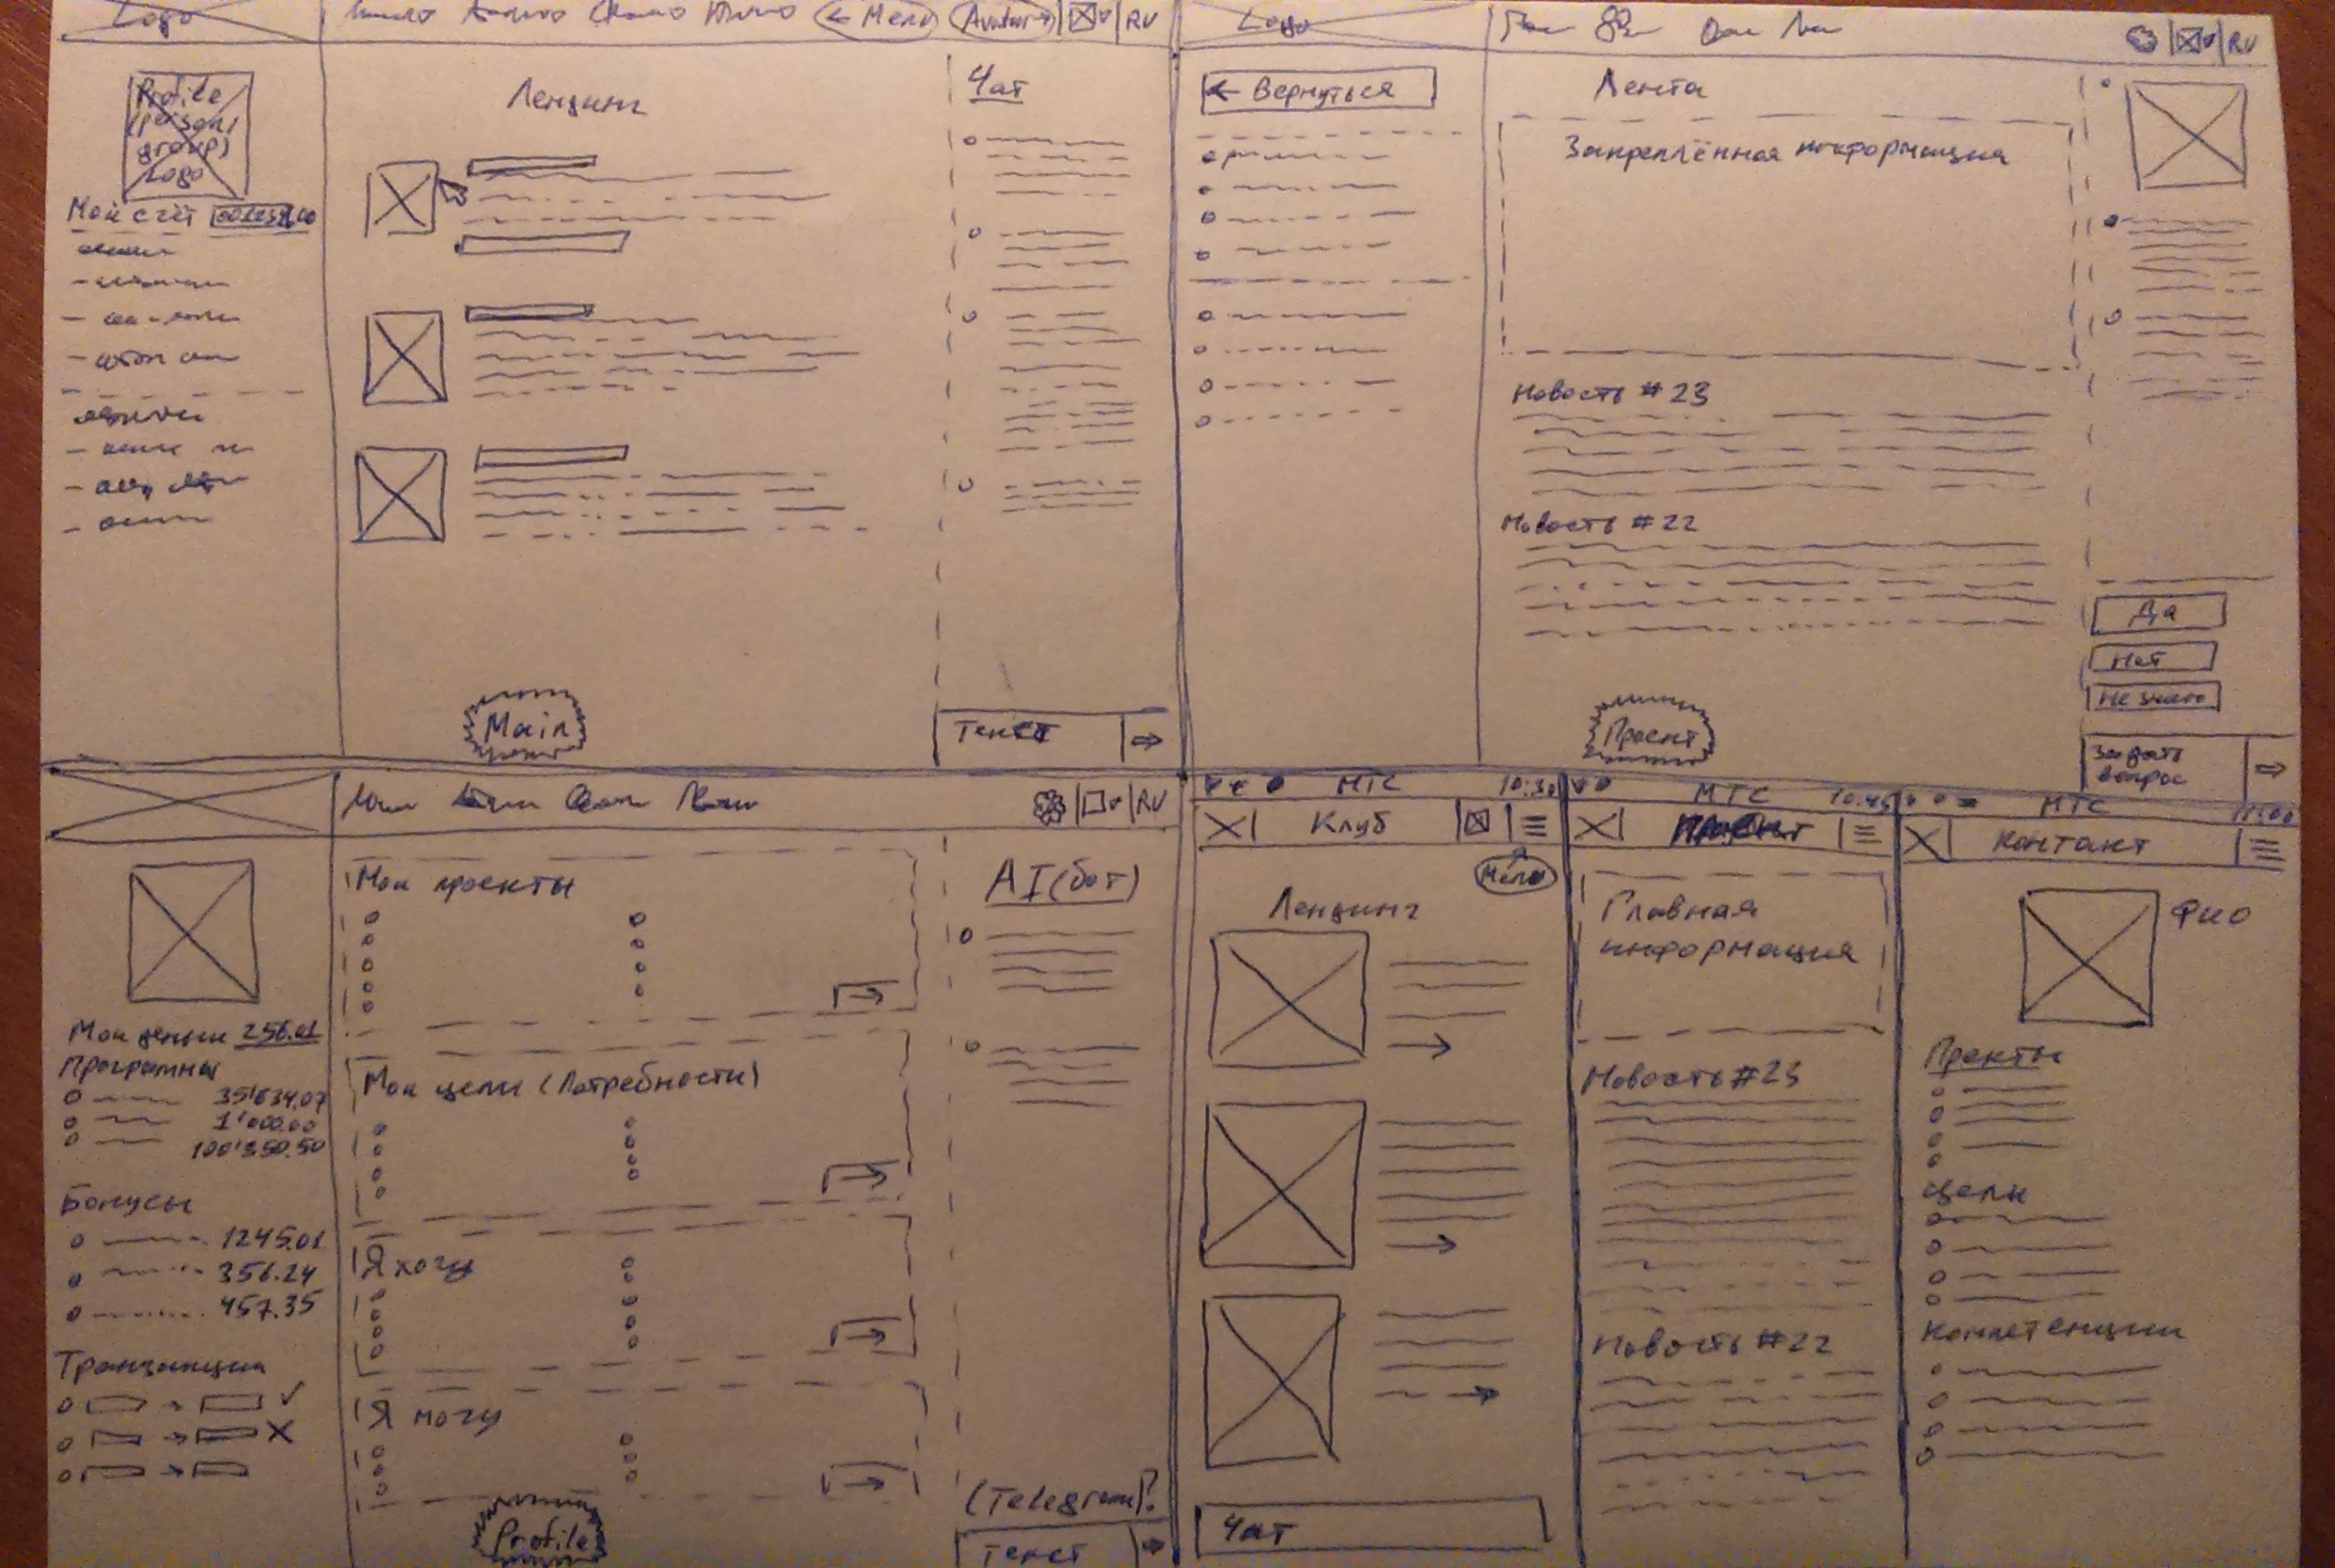 Logo
← Menu
Avatar
RU
Profile
(person/
group)
Logo
Мой счёт
Лендинг
Чат
Main
Текст
Logo
RU
← Вернуться
Лента
Закреплённая информация
Новость #23
Новость #22
Проект
Да
Нет
Не знаю
Задать
вопрос
RU
Мои деньги 256.01
Программы
35'634.07
1'000.00
100'350.50
Бонусы
1245.01
356.24
457.35
Транзакции
Мои проекты
Мои цели (потребности)
Я хочу
Я могу
Profile
AI (бот)
(Telegram)?
Текст
МТС 10:30
Клуб
Menu
Лендинг
Чат
МТС 10:45
Проект
Главная
информация
Новость #23
Новость #22
МТС 11:00
Контакт
ФИО
Пректы
Цели
Компетенции